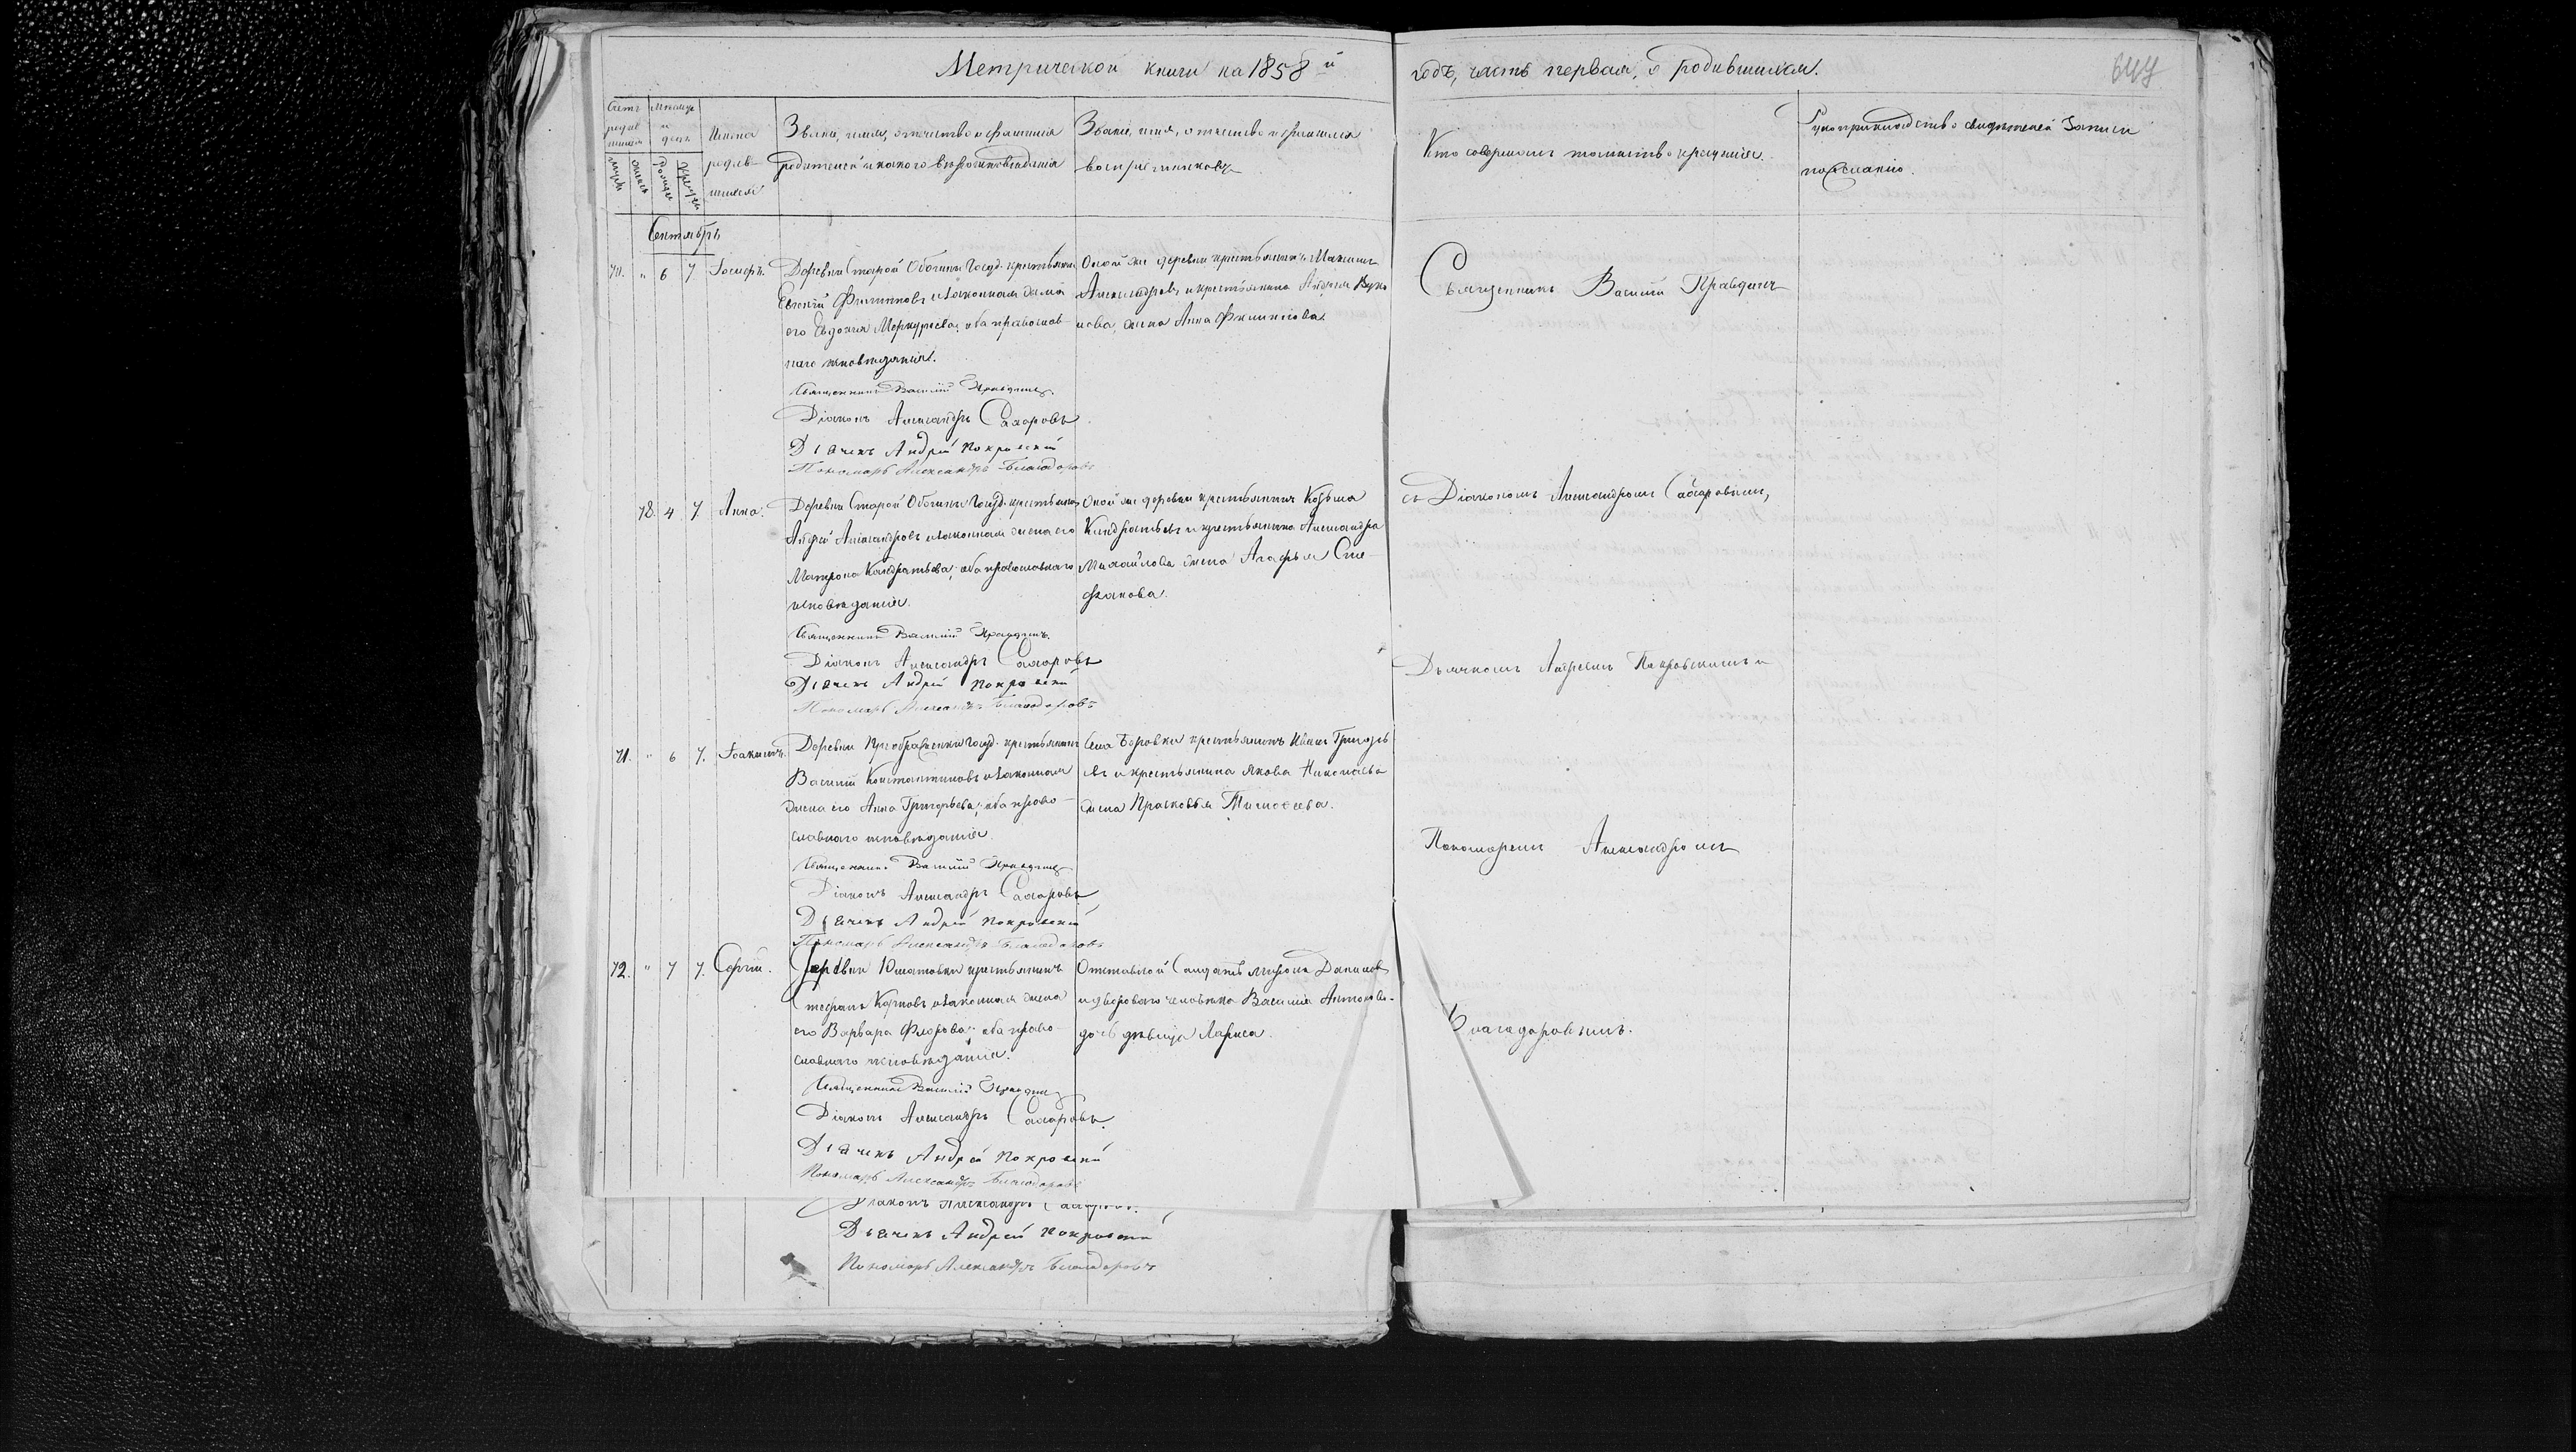 Метрической книги на 1858 й
годъ, часть первая, о родившихся.
647
Счетъ родившихся
Мѣсяцъ и день
Имена родившихся
Званіе, имя, отчество и фамилія
родителей и какого вѣроисповѣданія
Званіе, имя, отчество и фамилія
воспріемниковъ
Кто совершалъ таинство крещенія.
Рукоприкладство свидѣтелей записи
по желанію.
муж.
женск.
рожден.
крещен.
Сентябрь
70. " 6 7 Іосифъ.
Деревни Старой Обошни Госуд. крестьянинъ
Евсѣий Филиповъ и законная жена
его Евдокія Меркурьева; оба православ-
наго исповѣданія.
Оной же деревни крестьянинъ Максимъ
Александровъ и крестьянина Андрея Вуко
лова жена Анна Филипова.
Священникъ Василій Правдинъ
Діаконъ Александръ Сахаровъ
Дьячекъ Андрей Покровскій
Пономарь Александръ Благодаровъ
78. 4 7 Анна.
Деревни Старой Обошни Госуд. крестьянинъ
Андрей Александровъ и законная жена его
Матрона Кандратьева; оба православнаго
исповѣданія.
Оной же деревни крестьянинъ Козьма
Кандратьевъ и крестьянина Александра
Михайлова жена Агафья Сте-
фанова.
Священникъ Василій Правдинъ.
Діаконъ Александръ Сахаровъ
Дьячекъ Андрей Покровскій
Пономарь Александръ Благодаровъ
71. " 6 7. Іоакимъ.
Деревни Преображенки Госуд. крестьянинъ
Василій Константиновъ и законная
жена его Анна Григорьева; оба право-
славнаго исповѣданія.
Села Боровки крестьянинъ Иванъ Григорь
евъ и крестьянина Якова Николаева
жена Прасковья Тимофеева.
Священникъ Василій Правдинъ
Діаконъ Александръ Сахаровъ
Дьячекъ Андрей Покровскій
Пономарь Александръ Благодаровъ
72. " 7 7. Сергій.
Деревни Юматовки крестьянинъ
Стефанъ Карповъ и законная жена
его Варвара Флорова; оба право-
славнаго исповѣданія.
Отставной Солдатъ Миронъ Даниловъ
и двороваго человѣка Василія Антонова
дочь дѣвица Лариса.
Священникъ Василій Правдинъ
Діаконъ Александръ Сахаровъ.
Дьячекъ Андрей Покровскій
Пономарь Александръ Благодаровъ
Діаконъ Александръ Сахаровъ.
Дьячекъ Андрей Покровскій
Пономарь Александръ Благодаровъ
Священникъ Василій Правдинъ
съ Діакономъ Александромъ Сахаровымъ,
Дьячкомъ Андреемъ Покровскимъ и
Пономаремъ Александромъ
Благодаровымъ.